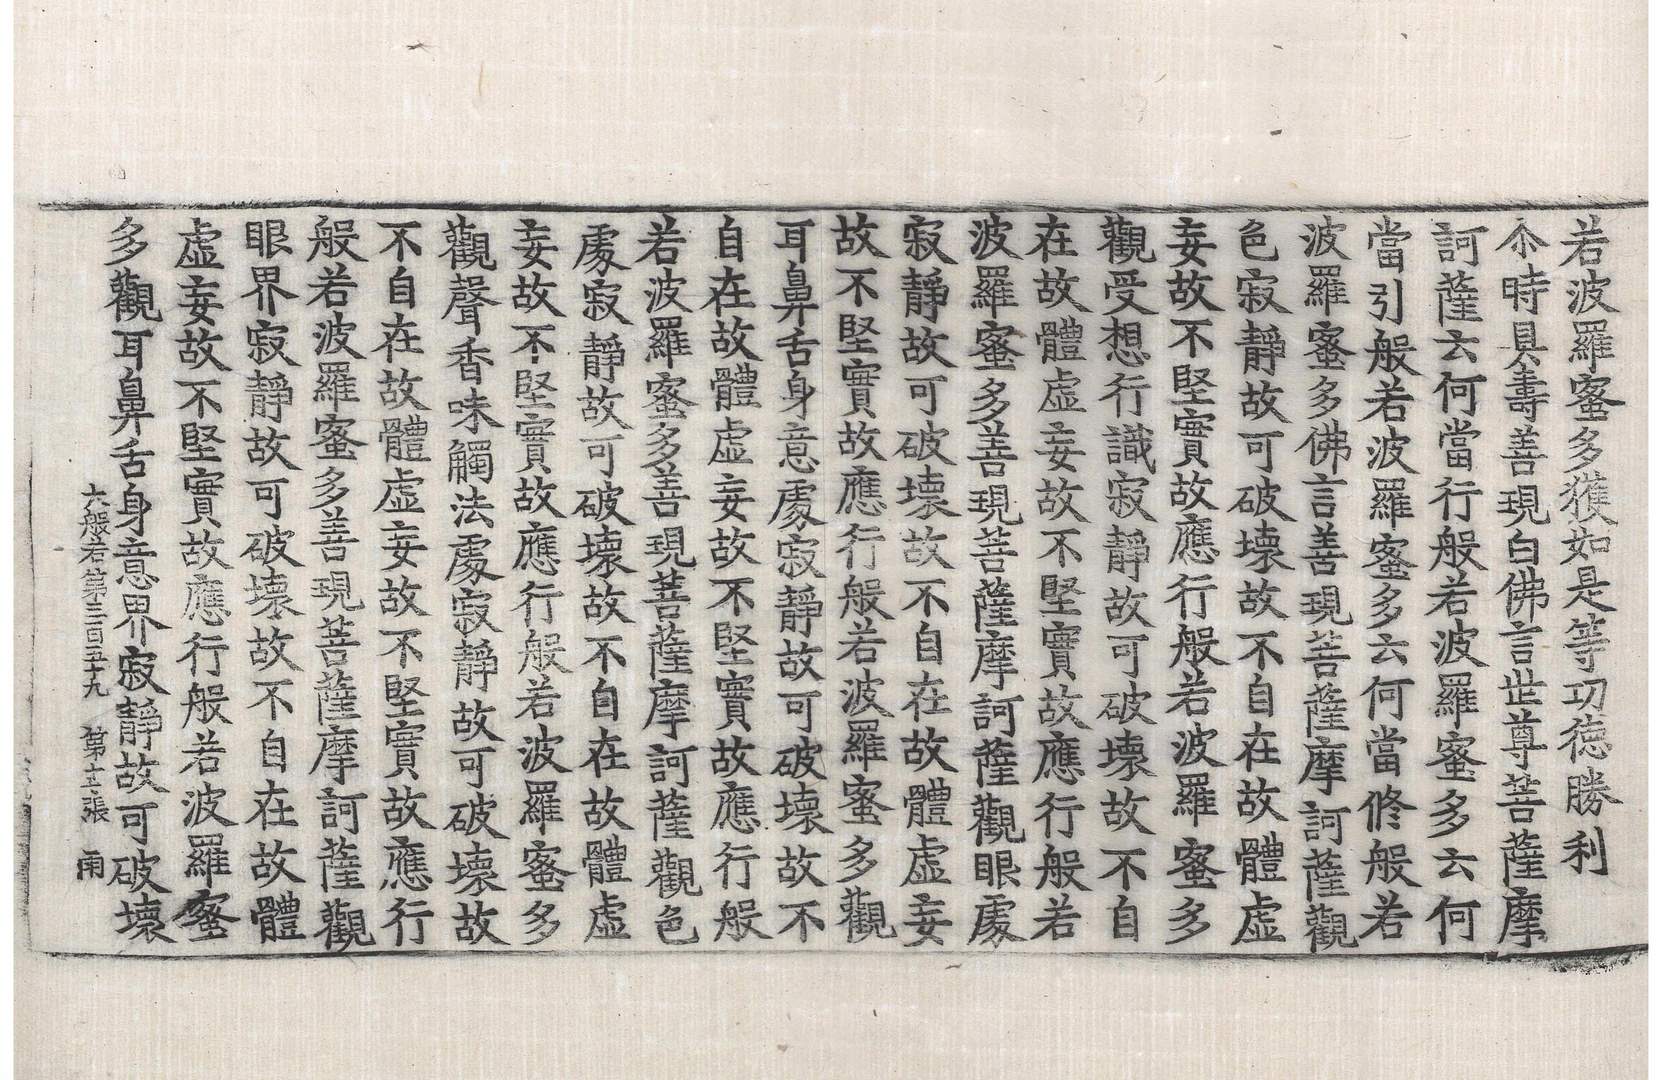 若波羅蜜多獲如是等功德勝利
尒時具壽善現白佛言世尊菩薩摩
訶薩云何當行般若波羅蜜多云何
當引般若波羅蜜多云何當修般若
波羅蜜多佛言善現菩薩摩訶薩觀
色寂靜故可破壞故不自在故體虛
妄故不堅實故應行般若波羅蜜多
觀受想行識寂靜故可破壞故不自
在故體虛妄故不堅實故應行般若
波羅蜜多善現菩薩摩訶薩觀眼處
寂靜故可破壞故不自在故體虛妄
故不堅實故應行般若波羅蜜多觀
耳鼻舌身意處寂靜故可破壞故不
自在故體虛妄故不堅實故應行般
若波羅蜜多善現菩薩摩訶薩觀色
處寂靜故可破壞故不自在故體虛
妄故不堅實故應行般若波羅蜜多
觀聲香味觸法處寂靜故可破壞故
不自在故體虛妄故不堅實故應行
般若波羅蜜多善現菩薩摩訶薩觀
眼界寂靜故可破壞故不自在故體
虛妄故不堅實故應行般若波羅蜜
多觀耳鼻舌身意界寂靜故可破壞
大般若第三百五十九 第十二張 雨